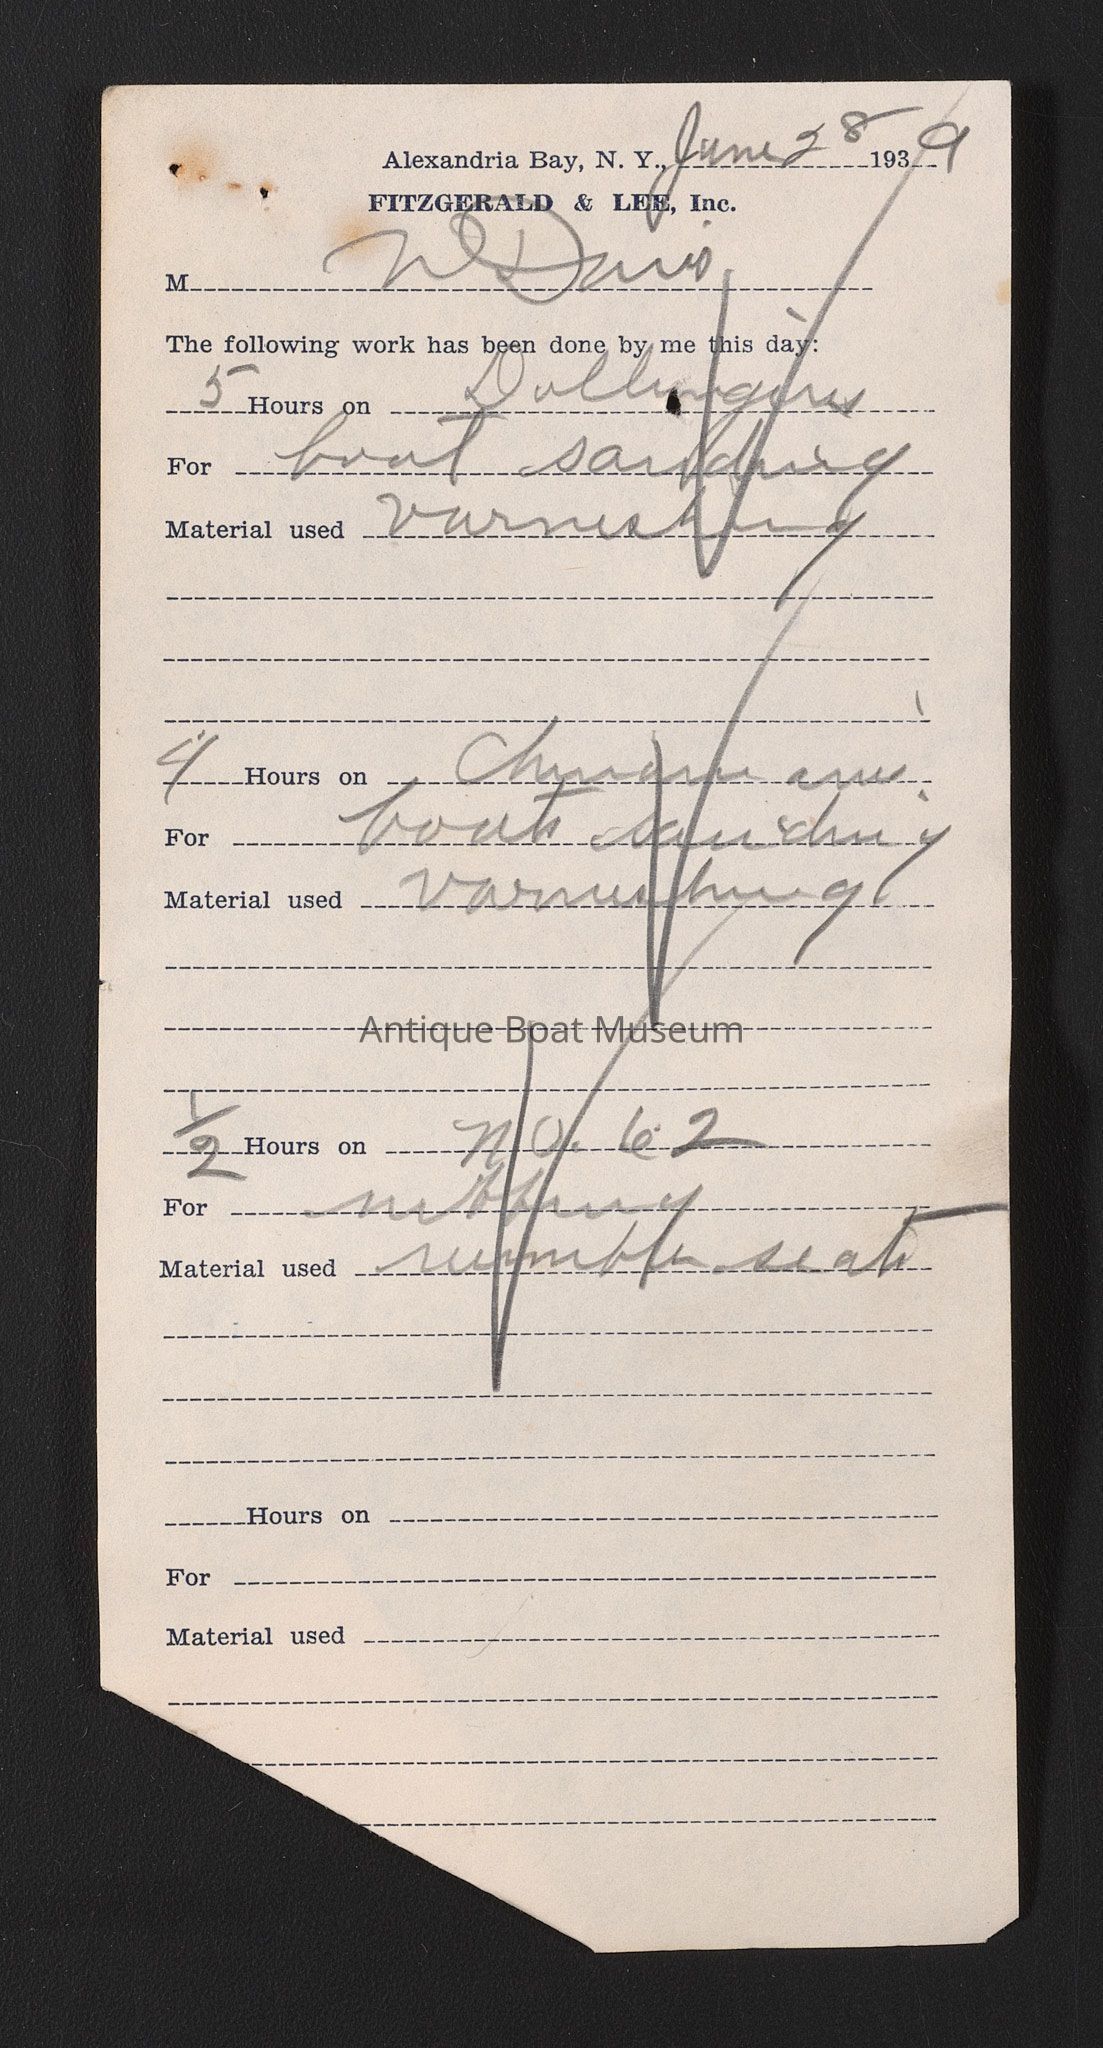 Alexandria Bay, N. Y., June 28 1939
FITZGERALD & LEE, Inc.
M W Davis
The following work has been done by me this day:
5 Hours on Dollingers
For boat sanding
Material used varnishing
4 Hours on
For boat sanding
Material used varnishing
Antique Boat Museum
1/2 Hours on No. 62
For
Material used rumble seat
Hours on
For
Material used